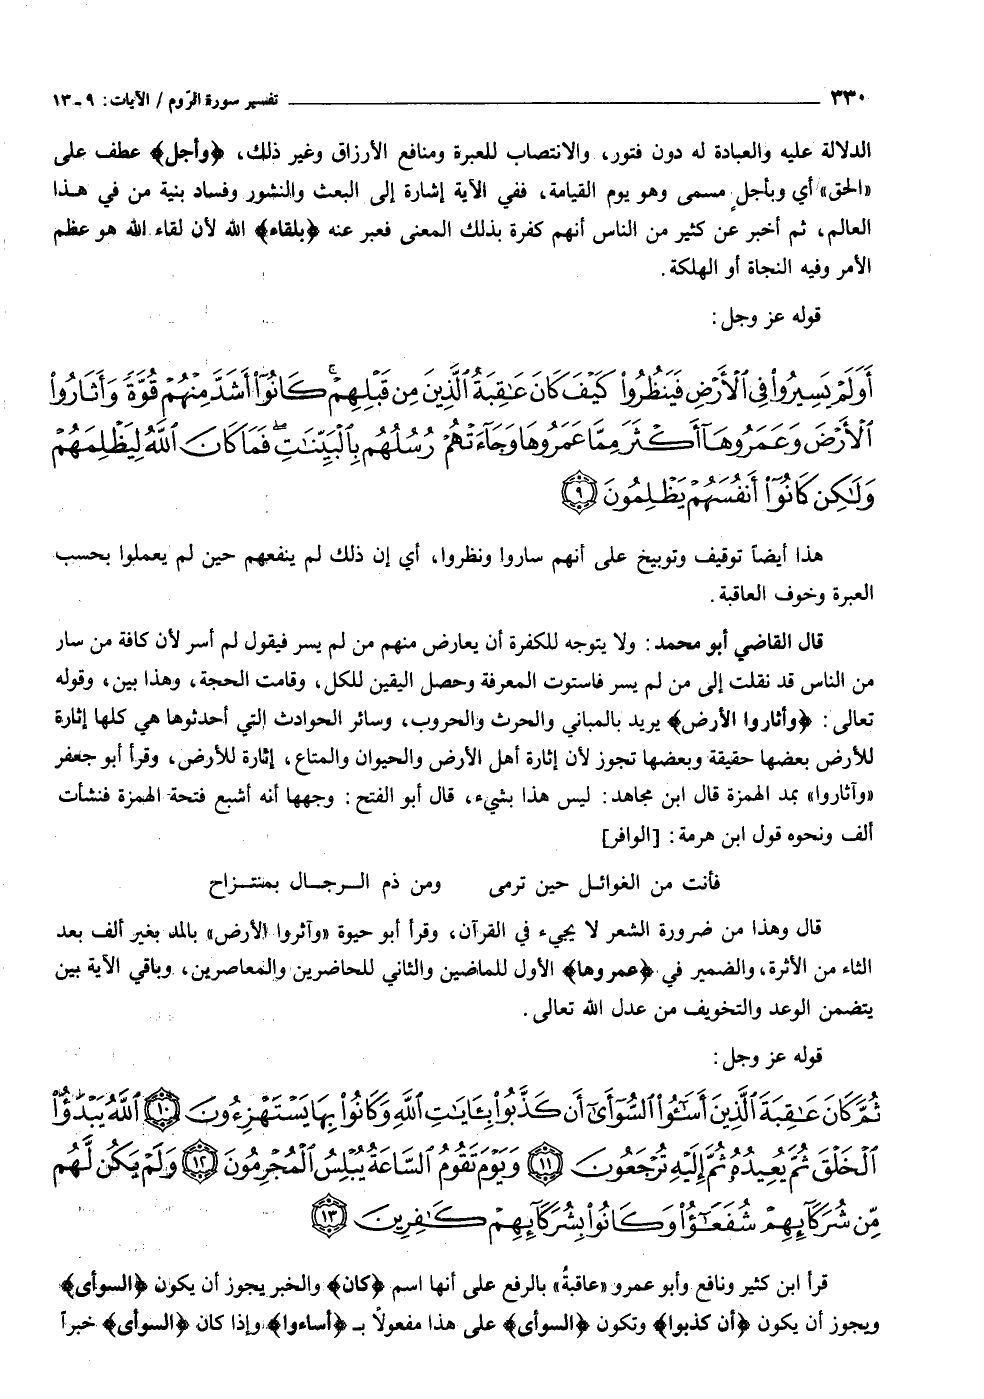 ٣٣٠ ــــــــــ تفسير سورة الرّوم / الآيات: ٩ ـ ١٣
الدلالة عليه والعبادة له دون فتور، والانتصاب للعبرة ومنافع الأرزاق وغير ذلك، ﴿وأجل﴾ عطف على
«الحق» أي وبأجلٍ مسمى وهو يوم القيامة، ففي الآية إشارة إلى البعث والنشور وفساد بنية من في هـذا
العالم، ثم أخبر عن كثير من الناس أنهم كفرة بذلك المعنى فعبر عنه ﴿بلقاء﴾ الله لأن لقاء الله هو عظم
الأمر وفيه النجاة أو الهلكة.
قوله عز وجل:
أَوَلَمْ يَسِيرُوا۟ فِى ٱلْأَرْضِ فَيَنظُرُوا۟ كَيْفَ كَانَ عَـٰقِبَةُ ٱلَّذِينَ مِن قَبْلِهِمْ ۚ كَانُوٓا۟ أَشَدَّ مِنْهُمْ قُوَّةً وَأَثَارُوا۟
ٱلْأَرْضَ وَعَمَرُوهَآ أَكْثَرَ مِمَّا عَمَرُوهَا وَجَآءَتْهُمْ رُسُلُهُم بِٱلْبَيِّنَـٰتِ ۖ فَمَا كَانَ ٱللَّهُ لِيَظْلِمَهُمْ
وَلَـٰكِن كَانُوٓا۟ أَنفُسَهُمْ يَظْلِمُونَ ﴿٩﴾
هذا أيضاً توقيف وتوبيخ على أنهم ساروا ونظروا، أي إن ذلك لم ينفعهم حين لم يعملوا بحسب
العبرة وخوف العاقبة.
قال القاضي أبو محمد: ولا يتوجه للكفرة أن يعارض منهم من لم يسر فيقول لم أسر لأن كافة من سار
من الناس قد نقلت إلى من لم يسر فاستوت المعرفة وحصل اليقين للكل، وقامت الحجة، وهذا بين، وقوله
تعالى: ﴿وأثاروا الأرض﴾ يريد بالمباني والحرث والحروب، وسائر الحوادث التي أحدثوها هي كلها إثارة
للأرض بعضها حقيقة وبعضها تجوز لأن إثارة أهل الأرض والحيوان والمتاع، إثارة للأرض، وقرأ أبو جعفر
«وآثاروا» بمد الهمزة قال ابن مجاهد: ليس هذا بشيء، قال أبو الفتح: وجهها أنه أشبع فتحة الهمزة فنشأت
ألف ونحوه قول ابن هرمة: [الوافر]
فأنت من الغوائـل حين ترمى ومن ذم الـرجـال بمنتـزاح
قال وهذا من ضرورة الشعر لا يجيء في القرآن، وقرأ أبو حيوة «وآثروا الأرض» بالمد بغير ألف بعد
الثاء من الأثرة، والضمير في ﴿عمروها﴾ الأول للماضين والثاني للحاضرين والمعاصرين، وباقي الآية بين
يتضمن الوعد والتخويف من عدل الله تعالى.
قوله عز وجل:
ثُمَّ كَانَ عَـٰقِبَةَ ٱلَّذِينَ أَسَـٰٓـُٔوا۟ ٱلسُّوٓأَىٰٓ أَن كَذَّبُوا۟ بِـَٔايَـٰتِ ٱللَّهِ وَكَانُوا۟ بِهَا يَسْتَهْزِءُونَ ﴿١٠﴾ ٱللَّهُ يَبْدَؤُا۟
ٱلْخَلْقَ ثُمَّ يُعِيدُهُۥ ثُمَّ إِلَيْهِ تُرْجَعُونَ ﴿١١﴾ وَيَوْمَ تَقُومُ ٱلسَّاعَةُ يُبْلِسُ ٱلْمُجْرِمُونَ ﴿١٢﴾ وَلَمْ يَكُن لَّهُم
مِّن شُرَكَآئِهِمْ شُفَعَـٰٓؤُا۟ وَكَانُوا۟ بِشُرَكَآئِهِمْ كَـٰفِرِينَ ﴿١٣﴾
قرأ ابن كثير ونافع وأبو عمرو «عاقبةُ» بالرفع على أنها اسم ﴿كان﴾ والخبر يجوز أن يكون ﴿السوأى﴾
ويجوز أن يكون ﴿أن كذبوا﴾ وتكون ﴿السوأى﴾ على هذا مفعولاً بـ ﴿أساءوا﴾ وإذا كان ﴿السوأى﴾ خبراً